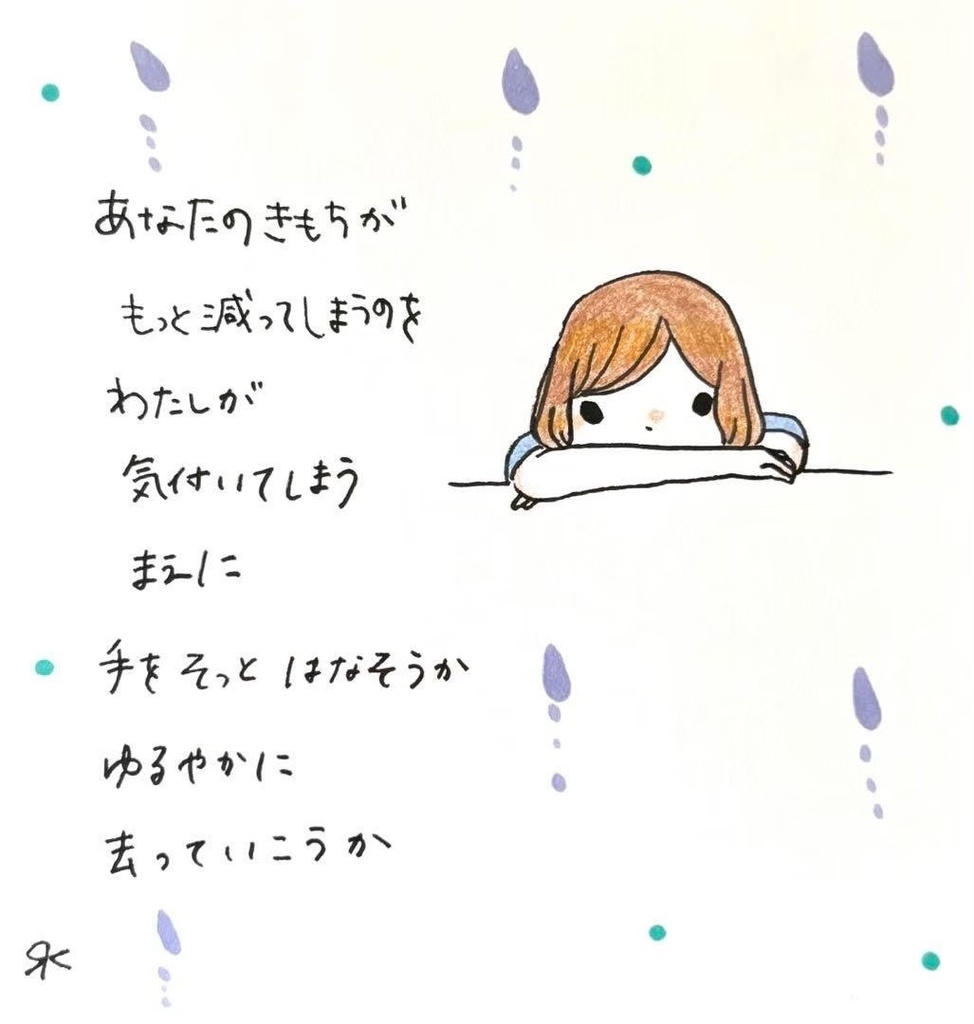 あなたのきもちが
もっと減ってしまうのを
わたしが
気付いてしまう
まえに
手をそっと はなそうか
ゆるやかに
去っていこうか